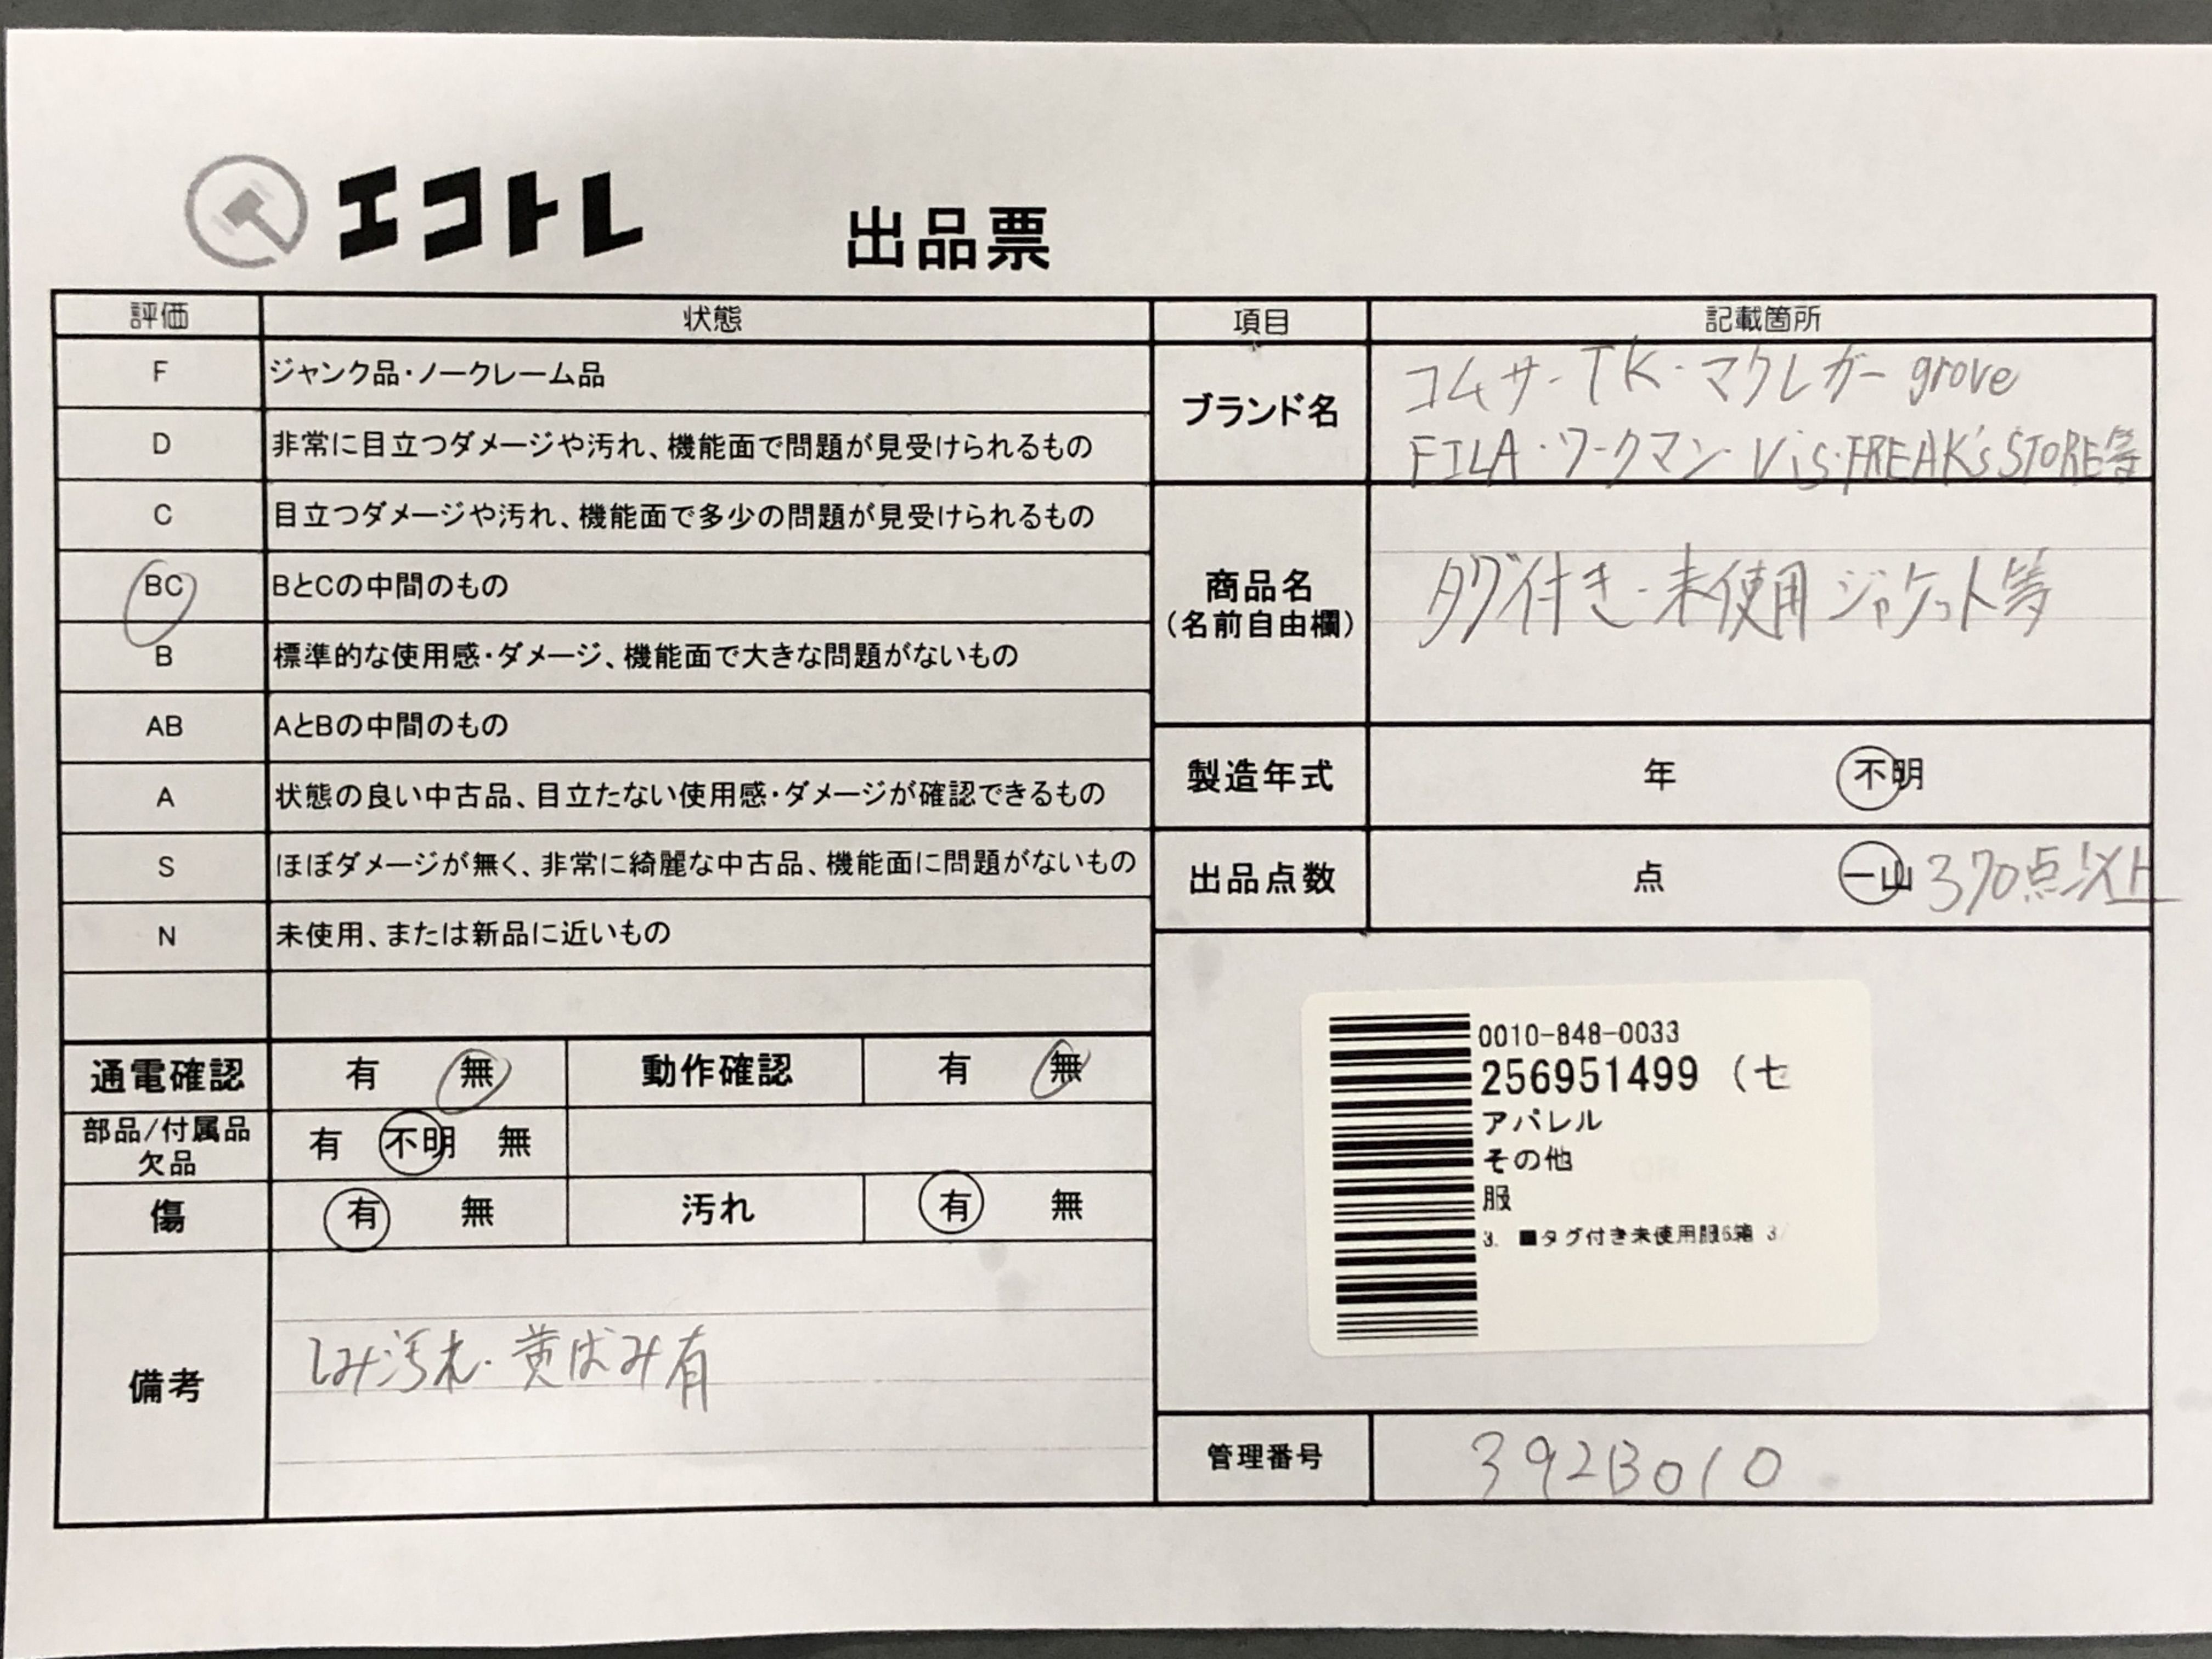 エコトレ
出品票
評価 状態
F ジャンク品・ノークレーム品
D 非常に目立つダメージや汚れ、機能面で問題が見受けられるもの
C 目立つダメージや汚れ、機能面で多少の問題が見受けられるもの
BC BとCの中間のもの
B 標準的な使用感・ダメージ、機能面で大きな問題がないもの
AB AとBの中間のもの
A 状態の良い中古品、目立たない使用感・ダメージが確認できるもの
S ほぼダメージが無く、非常に綺麗な中古品、機能面に問題がないもの
N 未使用、または新品に近いもの
通電確認 有 無 動作確認 有 無
部品/付属品
欠品
有 不明 無
傷 有 無 汚れ 有 無
備考
しみ汚れ・黄ばみ有
項目 記載箇所
ブランド名
コムサ・TK・マクレガー grove
FILA・ワークマン・Vis・FREAK'S STORE等
商品名
(名前自由欄)
タグ付き・未使用ジャケット等
製造年式 年 不明
出品点数 点 一山 370点以上
0010-848-0033
256951499 (七
アパレル
その他
服
3. ■タグ付き未使用服6箱 3/
管理番号 392B010